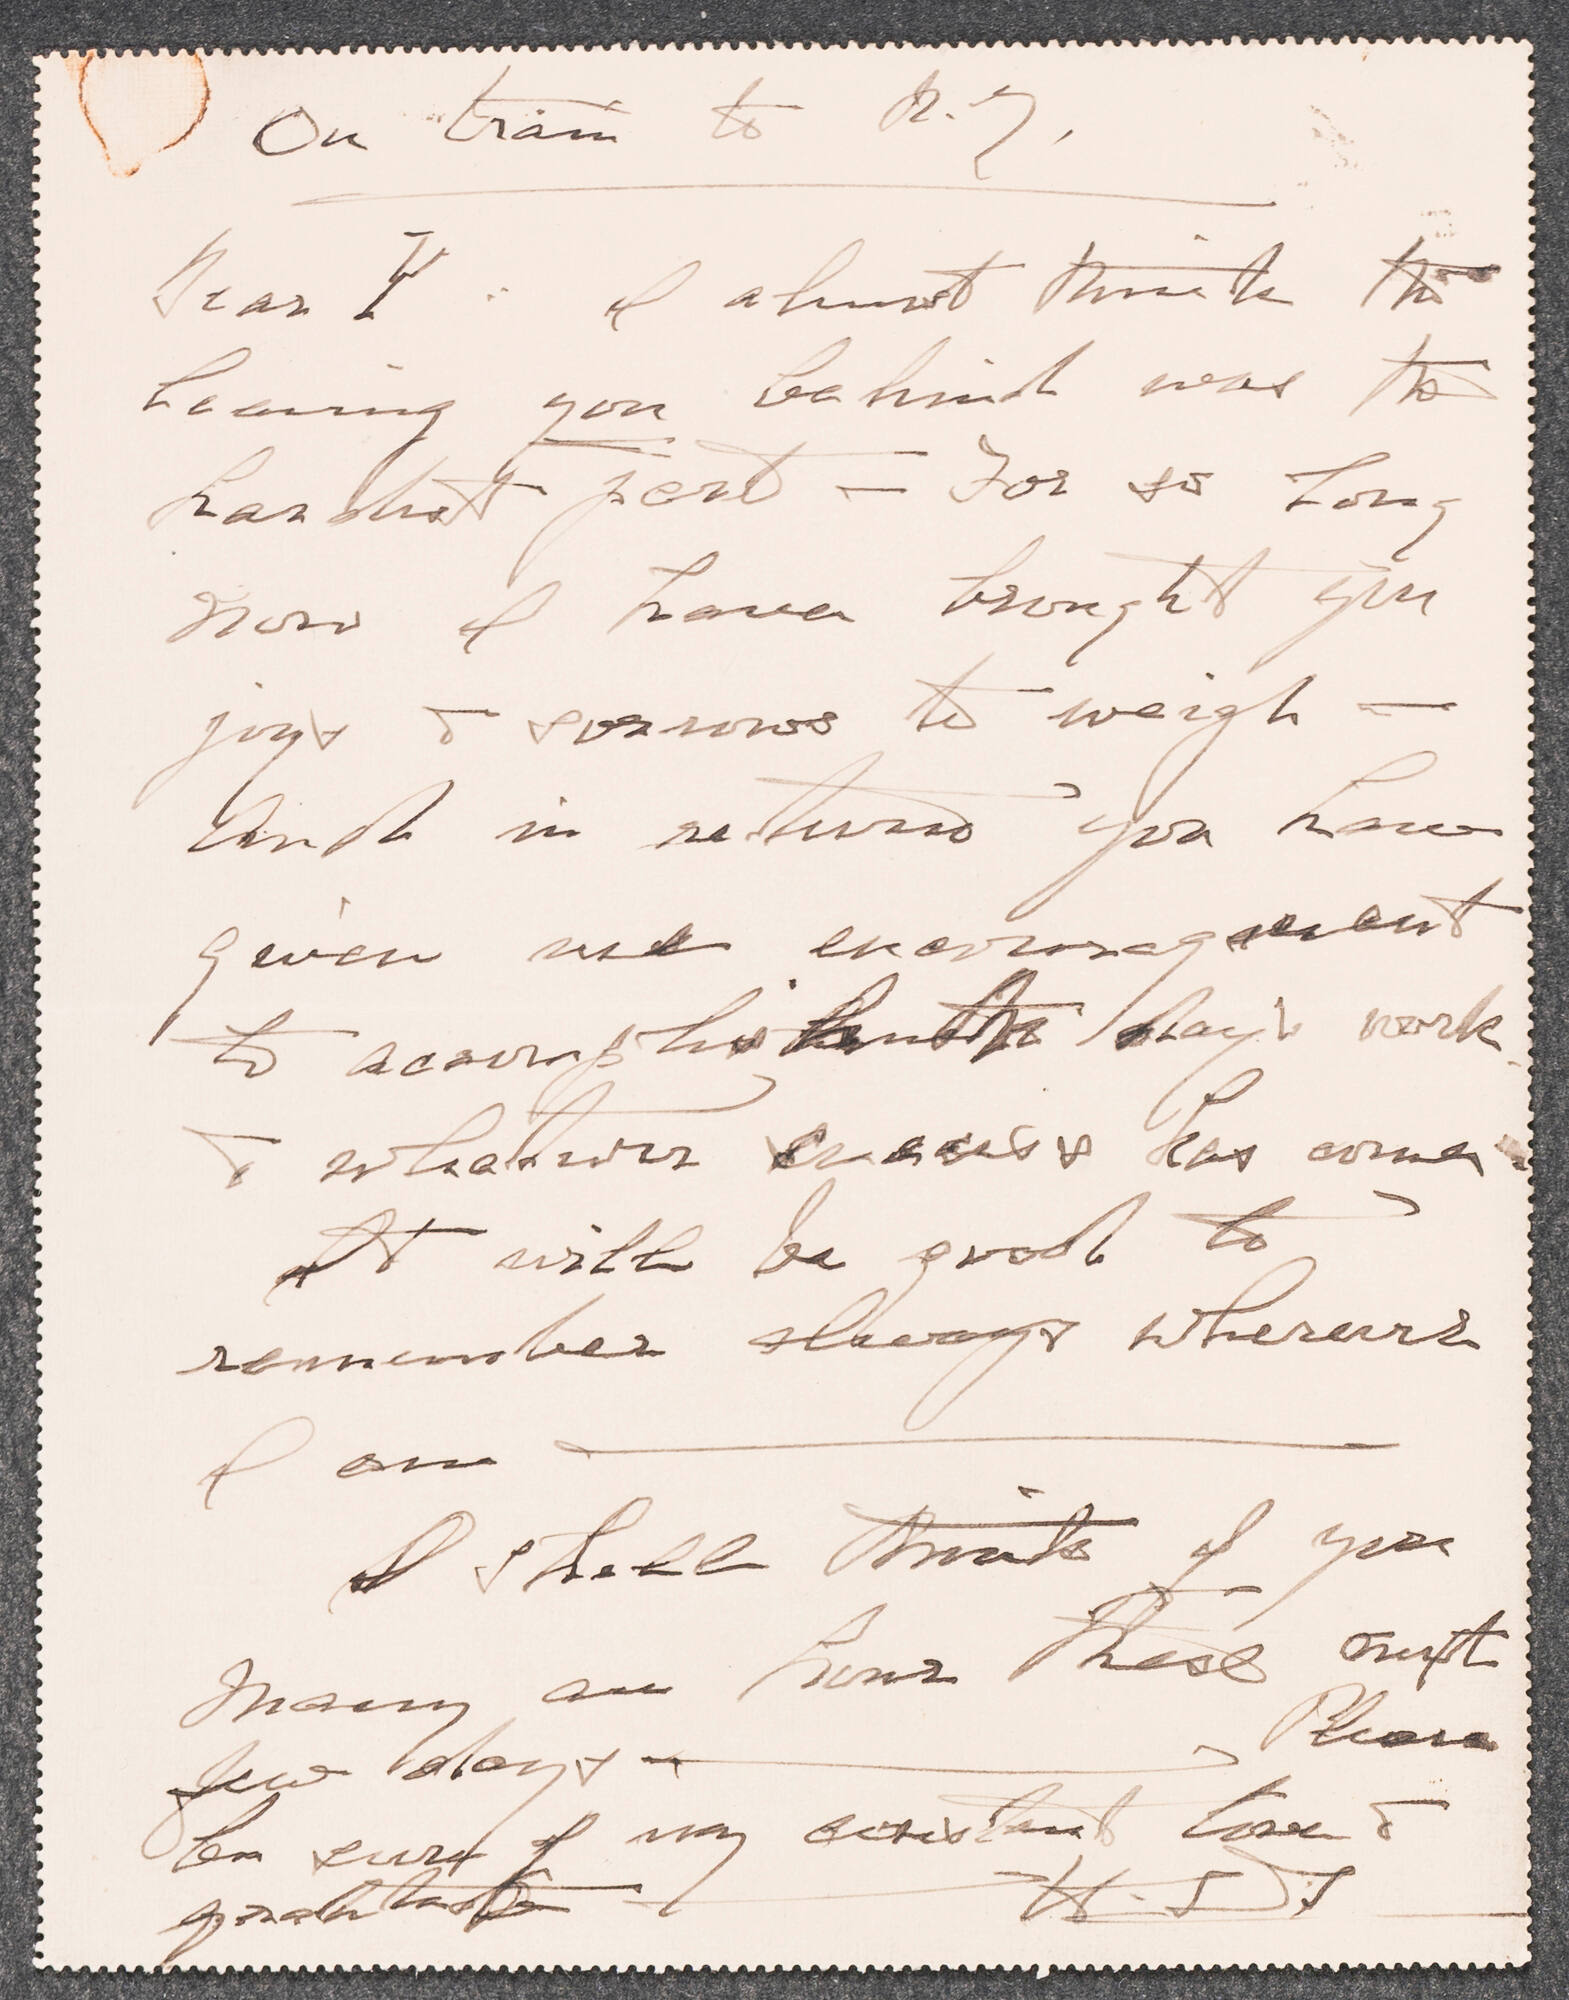 On train to N.Y.
Dear Y I almost think the
leaving you behind was the
hardest part — For so long
now I have brought you
joys & sorrows to weigh —
And in return you have
given me encouragement
to accomplish the day's work
& whatever success has come
It will be good to
remember always wherever
I am
I shall think of you
many an hour these next
few days — Please
be sure of my constant love &
gratitude —